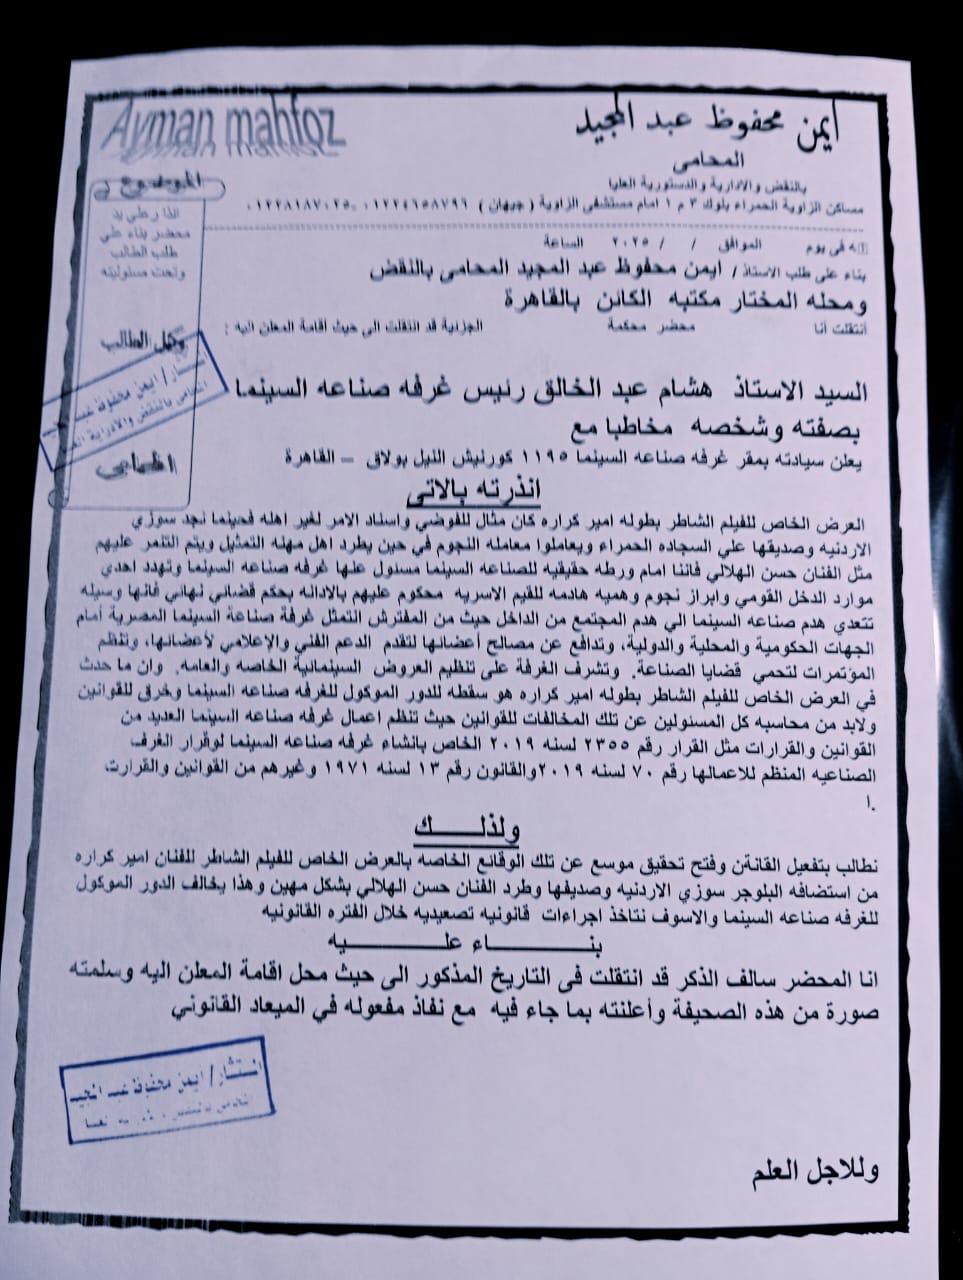 Ayman mahfoz
ايمن محفوظ عبد المجيد
المحامى
بالنقض والادارية والدستورية العليا
مساكن الزاوية الحمراء بلوك ٣ م ١ امام مستشفى الزاوية ( جيهان ) ٠١٢٢٤٦٥٨٧٩٦ ..٠١٢٢٨١٨٧٠٢٥
الموضوع
انذار على يد
محضر بناء علي
طلب الطالب
وتحت مسئوليته
وكيل الطالب
المحامي
انه فى يوم الموافق / / ٢٠٢٥ الساعة
بناء على طلب الاستاذ / ايمن محفوظ عبد المجيد المحامى بالنقض
ومحله المختار مكتبه الكائن بالقاهرة
انتقلت أنا محضر محكمة الجزئية قد انتقلت الى حيث أقامة المعلن اليه :
السيد الاستاذ هشام عبد الخالق رئيس غرفه صناعه السينما
بصفته وشخصه مخاطبا مع
يعلن سيادته بمقر غرفه صناعه السينما ١١٩٥ كورنيش النيل بولاق – القاهرة
انذرته بالاتى
العرض الخاص للفيلم الشاطر بطوله امير كراره كان مثال للفوضي واسناد الامر لغير اهله فحينما نجد سوزي
الاردنيه وصديقها علي السجاده الحمراء ويعاملوا معامله النجوم في حين يطرد اهل مهنه التمثيل ويتم التنمر عليهم
مثل الفنان حسن الهلالي فائنا امام ورطه حقيقيه للصناعه السينما مسئول عنها غرفه صناعه السينما وتهدد احدي
موارد الدخل القومي وابراز نجوم وهميه هادمه للقيم الاسريه محكوم عليهم بالادانه بحكم قضائي نهائي فانها وسيله
تتعدي هدم صناعه السينما الي هدم المجتمع من الداخل حيث من المفترش التمثل غرفة صناعة السينما المصرية أمام
الجهات الحكومية والمحلية والدولية، وتدافع عن مصالح أعضائها لتقدم الدعم الفني والإعلامي لأعضائها، وتنظم
المؤتمرات لتحمي قضايا الصناعة. وتشرف الغرفة على تنظيم العروض السينمائية الخاصه والعامه. وان ما حدث
في العرض الخاص للفيلم الشاطر بطوله امير كراره هو سقطه للدور الموكول للغرفه صناعه السينما وخرق للقوانين
ولابد من محاسبه كل المسئولين عن تلك المخالفات للقوانين حيث تنظم اعمال غرفه صناعه السينما العديد من
القوانين والقرارات مثل القرار رقم ٢٣٥٥ لسنه ٢٠١٩ الخاص بانشاء غرفه صناعه السينما لوقرار الغرف
الصناعيه المنظم للاعمالها رقم ٧٠ لسنه ٢٠١٩والقانون رقم ١٣ لسنه ١٩٧١ وغيرهم من القوانين والقرارت
.ا
ولذلــــــك
نطالب بتفعيل القانةن وفتح تحقيق موسع عن تلك الوقائع الخاصه بالعرض الخاص للفيلم الشاطر للفنان امير كراره
من استضافه البلوجر سوزي الاردنيه وصديفها وطرد الفنان حسن الهلالي بشكل مهين وهذا يخالف الدور الموكول
للغرفه صناعه السينما والاسوف نتاخذ اجراءات قانونيه تصعيديه خلال الفتره القانونيه
بنـــــــــاء عليـــــــــه
انا المحضر سالف الذكر قد انتقلت فى التاريخ المذكور الى حيث محل اقامة المعلن اليه وسلمته
صورة من هذه الصحيفة وأعلنته بما جاء فيه مع نفاذ مفعوله في الميعاد القانوني
المستشار / ايمن محفوظ عبد المجيد
وللاجل العلم